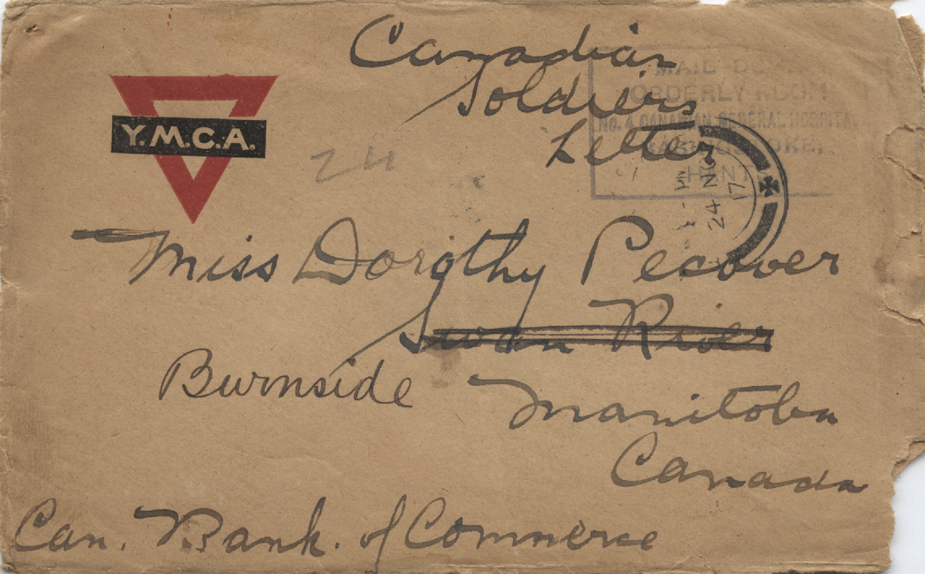 Canadian
Soldiers
Letter
Y.M.C.A.
MAIL
ORDERLY ROOM
No. 4 CANADIAN GENERAL HOSPITAL
HANT
24 NO
17
24
Miss Dorothy Pecover
Swan River
Burnside
Manitoba
Canada
Can. Bank. of Commerce